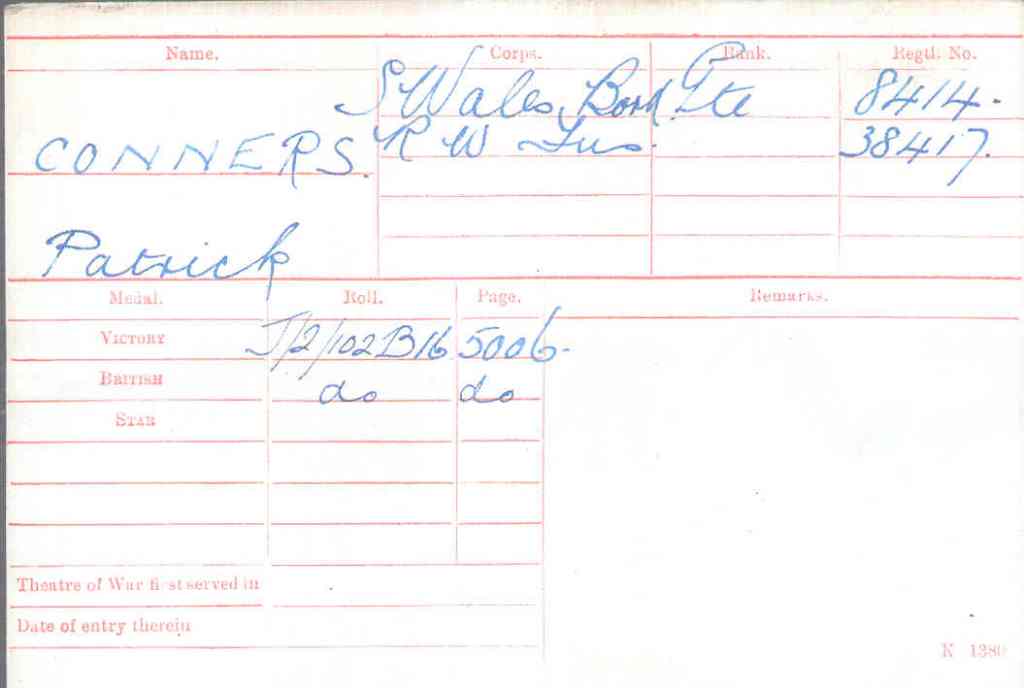 Name. Corps. Rank. Regtl. No.
S Wales Bord Pte 8414.
CONNERS. R W Fus. 38417.
Patrick
Medal. Roll. Page. Remarks.
VICTORY J/2/102B16 5006.
BRITISH do do
STAR
Theatre of War first served in
Date of entry therein
K 1380